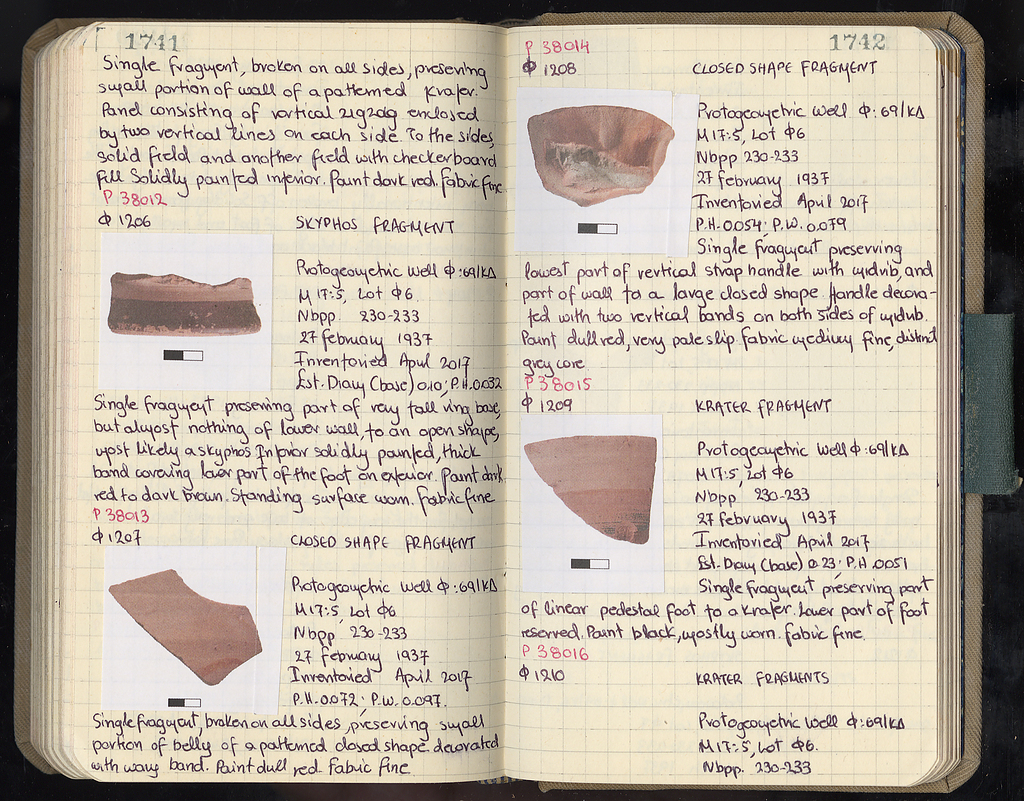 1741
Single fragment, broken on all sides, preserving
small portion of wall of a patterned krater.
Panel consisting of vertical zigzag enclosed
by two vertical lines on each side. To the sides,
solid field and another field with checkerboard
fill. Solidly painted interior. Paint dark red. Fabric fine
P 38012
Φ 1206 SKYPHOS FRAGMENT
Protogeometric well Φ:69/ΚΔ
M 17:5, Lot Φ6
Nbpp. 230-233
27 february 1937
Inventoried April 2017
Est. Diam (base) 0.10; P.H. 0.032
Single fragment preserving part of very tall ring base,
but almost nothing of lower wall, to an open shape,
most likely a skyphos. Interior solidly painted, thick
band covering lower part of the foot on exterior. Paint dark
red to dark brown. Standing surface worn. Fabric fine
P 38013
Φ 1207 CLOSED SHAPE FRAGMENT
Protogeometric well Φ:69/ΚΔ
M 17:5, Lot Φ6
Nbpp 230-233
27 february 1937
Inventoried April 2017
P.H. 0.072; P.W. 0.097.
Single fragment, broken on all sides, preserving small
portion of belly of a patterned closed shape decorated
with wavy band. Paint dull red. Fabric fine
1742
P 38014
Φ 1208 CLOSED SHAPE FRAGMENT
Protogeometric well Φ:69/ΚΔ
M 17:5, Lot Φ6
Nbpp 230-233
27 february 1937
Inventoried April 2017
P.H. 0.054; P.W. 0.079
Single fragment preserving
lowest part of vertical strap handle with midrib, and
part of wall to a large closed shape. Handle decora-
ted with two vertical bands on both sides of midrib.
Paint dull red, very pale slip. Fabric medium fine, distinct
grey core.
P 38015
Φ 1209 KRATER FRAGMENT
Protogeometric well Φ:69/ΚΔ
M 17:5, Lot Φ6
Nbpp. 230-233
27 february 1937
Inventoried April 2017
Est. Diam (base) 0.23; P.H. 0.051
Single fragment preserving part
of linear pedestal foot to a krater. Lower part of foot
reserved. Paint black, mostly worn. Fabric fine.
P 38016
Φ 1210 KRATER FRAGMENTS
Protogeometric well Φ:69/ΚΔ
M 17:5, Lot Φ6.
Nbpp. 230-233